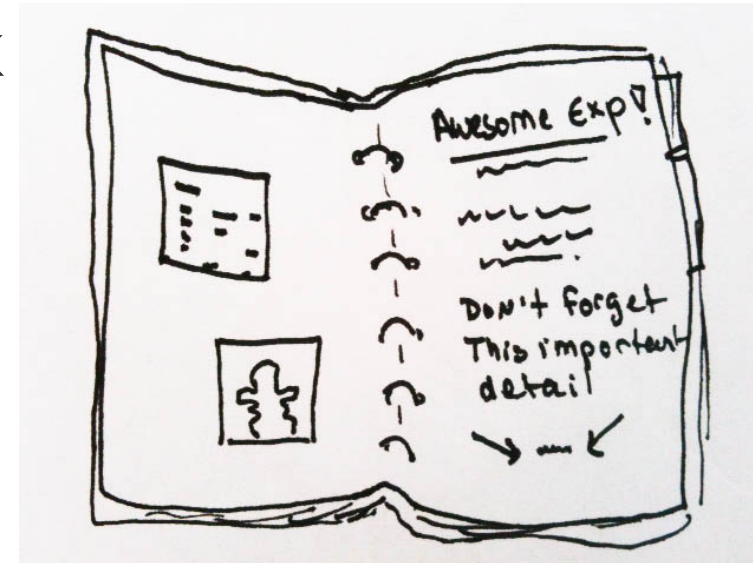 Awesome Exp!
Don't forget
This important
detail